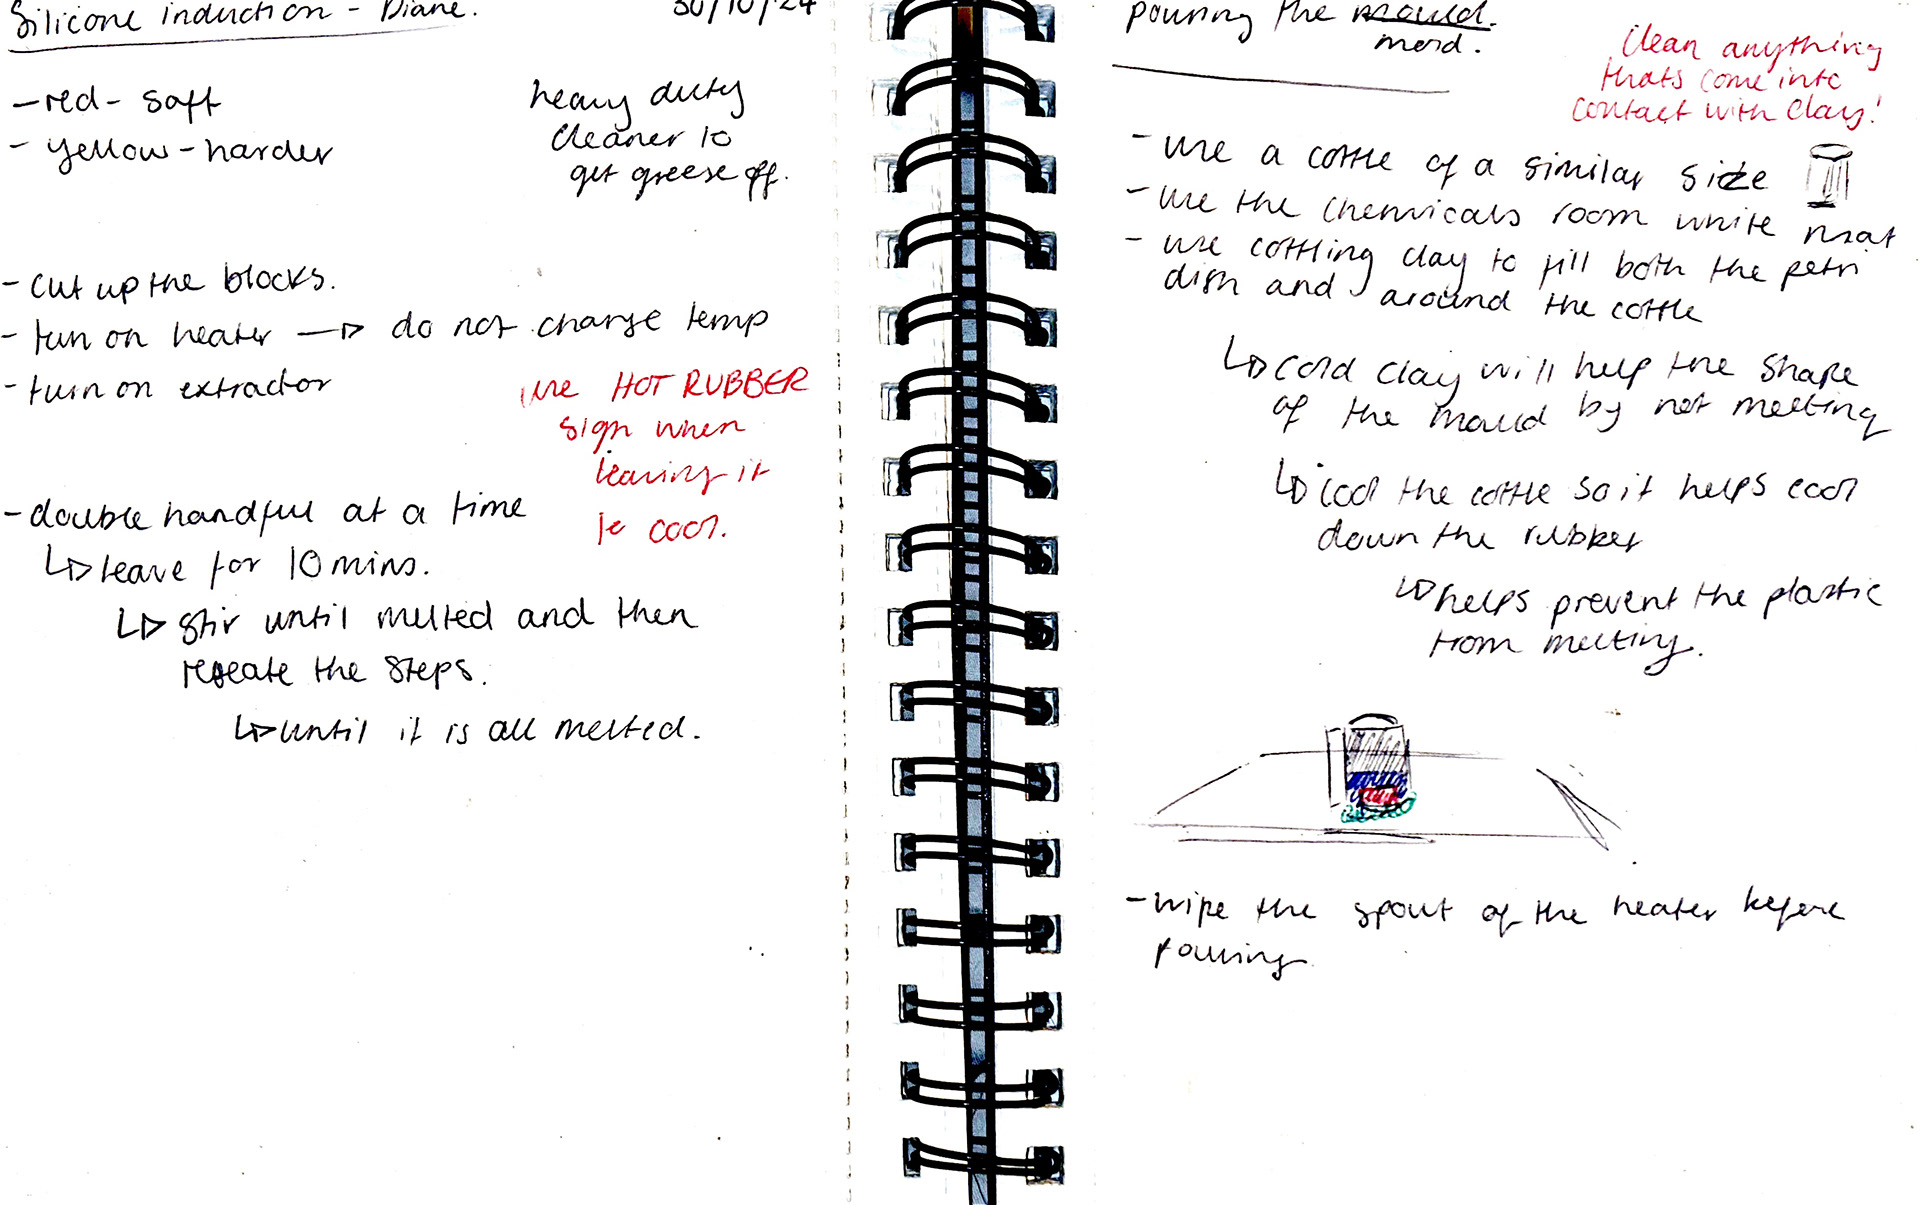 Silicone induction - Diane. 30/10/24
- red - soft
- yellow - harder
heavy duty
cleaner to
get greese off.
- cut up the blocks.
- turn on heater → do not change temp
- turn on extractor
use HOT RUBBER
sign when
leaving it
to cool.
- double handful at a time
↳ leave for 10 mins.
↳ stir until melted and then
repeate the steps.
↳ until it is all melted.
pouring the mould.
mold.
Clean anything
thats come into
contact with clay!
- use a cottle of a similar size
- use the chemicals room white mat
- use cottling clay to fill both the petri
dish and around the cottle
↳ cold clay will help the shape
of the mould by not melting
↳ cool the cottle so it helps cool
down the rubber
↳ helps prevent the plastic
from melting.
- wipe the spout of the heater before
pouring